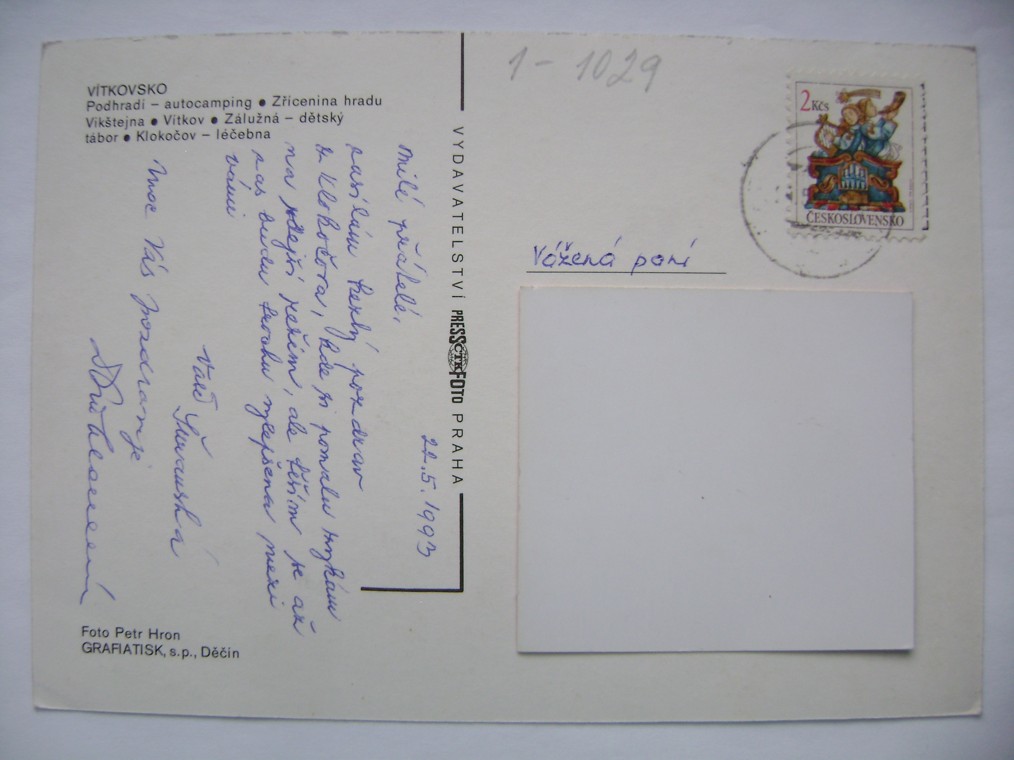 VÍTKOVSKO
Podhradí – autocamping ● Zřícenina hradu
Vikštejna ● Vítkov ● Zálužná – dětský
tábor ● Klokočov – léčebna
1 - 1029
2 Kčs
ČESKOSLOVENSKO
Vážená paní
VYDAVATELSTVÍ PRESSFOTO PRAHA
ČTK
22.5.1993
Milí přátelé,
zasílám hezký pozdrav
z Klokočova, kde si pomalu zvykám
na zdejší režim, ale těším se až
zas budu trochu vylepšena mezi
vámi
Vaše
Moc Vás pozdravuje
Foto Petr Hron
GRAFIATISK, s.p., Děčín